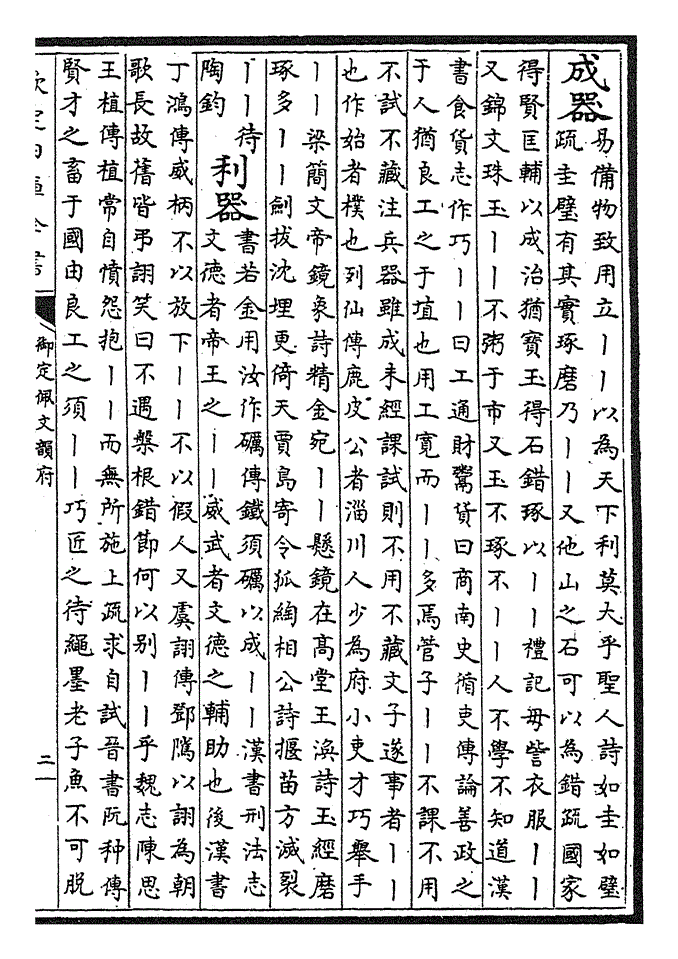 成器
易備物致用立丨丨以為天下利莫大乎聖人詩如圭如璧
疏圭璧有其實琢磨乃丨丨又他山之石可以為錯疏國家
得賢匡輔以成治猶寶玉得石錯琢以丨丨禮記毋訾衣服丨丨
又錦文珠玉丨丨不粥于市又玉不琢不丨丨人不學不知道漢
書食貨志作巧丨丨曰工通財鬻貨曰商南史循吏傳論善政之
于人猶良工之于埴也用工寛而丨丨多焉管子丨丨不課不用
不試不藏注兵器雖成未經課試則不用不藏文子遂事者丨丨
也作始者樸也列仙傳鹿皮公者淄川人少為府小吏才巧舉手
丨丨梁簡文帝鏡象詩精金宛丨丨懸鏡在髙堂王渙詩玉經磨
琢多丨丨劍拔沈埋更倚天賈島寄令狐綯相公詩揠苗方滅裂
丨丨待
陶鈞
利器
書若金用汝作礪傳鐵須礪以成丨丨漢書刑法志
文德者帝王之丨丨威武者文德之輔助也後漢書
丁鴻傳威柄不以放下丨丨不以假人又虞詡傳鄧騭以詡為朝
歌長故舊皆弔詡笑曰不遇槃根錯節何以别丨丨乎魏志陳思
王植傳植常自憤怨抱丨丨而無所施上疏求自試晉書阮种傳
賢才之畜于國由良工之須丨丨巧匠之待繩墨老子魚不可脱
欽定四庫全書
御定佩文韻府
二